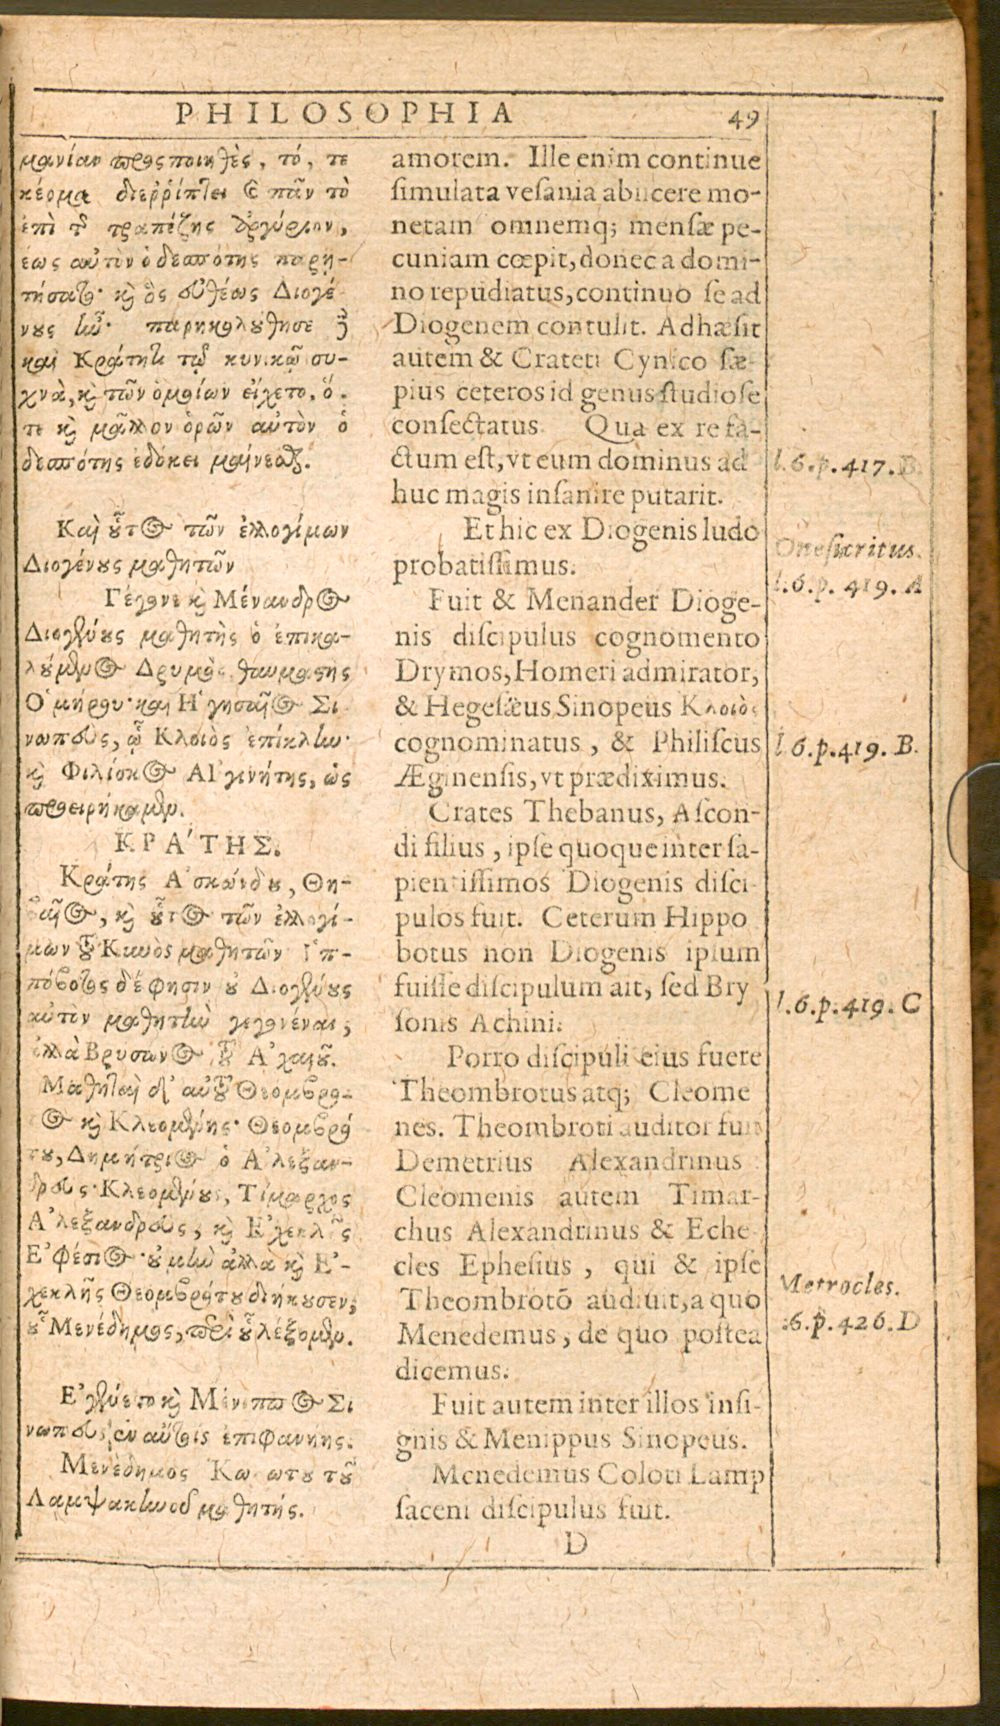 PHILOSOPHIA 49
μανίαν προσποιηθεὶς, τό, τε
κέρμα διεῤῥίπτει καὶ πᾶν τὸ
ἐπὶ τ τραπέζης ἀργύριον,
ἕως αὐτὸν ὁ δεσπότης παρῃ-
τήσατο· καὶ ὃς εὐθέως Διογέ
νους ἦν· παρηκολούθησε δὲ
καὶ Κράτητι τῷ κυνικῷ συ-
χνὰ, καὶ τῶν ὁμοίων εἴχετο, ὅ-
τε καὶ μᾶλλον ὁρῶν αὐτὸν ὁ
δεσπότης ἐδόκει μαίνεσθαι.
Καὶ οὗτος τῶν ἐλλογίμων
Διογένους μαθητῶν
Γέγονε καὶ Μένανδρος
Διογένους μαθητὴς ὁ ἐπικα-
λούμενος Δρυμὸς θαυμαστὴς
Ὁμήρου· καὶ Ἡγησαῖος Σι
νωπεὺς, ᾧ Κλοιὸς ἐπίκλην·
καὶ Φιλίσκος Αἰγινήτης, ὡς
προειρήκαμεν.
ΚΡΑ΄ΤΗΣ.
Κράτης Ἀσκώνδου, Θη-
βαῖος, καὶ οὗτος τῶν ἐλλογί-
μων τοῦ Κυνὸς μαθητῶν Ἱπ-
πόβοτος δέ φησιν οὐ Διογένους
αὐτὸν μαθητὴν γεγονέναι,
ἀλλὰ Βρύσωνος τοῦ Ἀχαιοῦ.
Μαθηταὶ δ' αὐτοῦ Θεόμβρο-
τος καὶ Κλεομένης· Θεομβρό
του, Δημήτριος ὁ Ἀλεξαν-
δρεύς· Κλεομένους, Τίμαρχος
Ἀλεξανδρεὺς, καὶ Ἐχεκλῆς
Ἐφέσιος· οὐ μὴν ἀλλὰ καὶ Ἐ-
χεκλῆς Θεομβρότου διήκουσεν,
οὗ Μενέδημος, περὶ οὗ λέξομεν.
Ἐγένετο καὶ Μένιππος Σι
νωπεὺς ἐν αὐτοῖς ἐπιφανής.
Μενέδημος Κωλώτου τοῦ
Λαμψακηνοῦ μαθητής.
amorem. Ille enim continue
simulata vesania abiicere mo-
netam omnemq; mensæ pe-
cuniam cœpit, donec a domi-
no repudiatus, continuo se ad
Diogenem contulit. Adhæsit
autem & Crateti Cynico sæ-
pius ceteros id genus studiose
consectatus Qua ex re fa-
ctum est, vt eum dominus ad
huc magis insanire putarit.
Et hic ex Diogenis ludo
probatissimus.
Fuit & Menander Dioge-
nis discipulus cognomento
Drymos, Homeri admirator,
& Hegesæus Sinopeus Κλοιὸς
cognominatus, & Philiscus
Æginensis, vt prædiximus.
Crates Thebanus, Ascon-
di filius, ipse quoque inter sa-
pientissimos Diogenis disci
pulos fuit. Ceterum Hippo
botus non Diogenis ipsum
fuisse discipulum ait, sed Bry
sonis Achini.
Porro discipuli eius fuere
Theombrotus atq; Cleome
nes. Theombroti auditor fuit
Demetrius Alexandrinus
Cleomenis autem Timar-
chus Alexandrinus & Eche
cles Ephesius, qui & ipse
Theombrotō audiuit, a quo
Menedemus, de quo postea
dicemus.
Fuit autem inter illos insi-
gnis & Menippus Sinopeus.
Menedemus Coloti Lamp
saceni discipulus fuit.
D
l.6.p.417.B.
Onesicritus.
l.6.p. 419. A
l 6.p.419. B.
l.6.p.419. C
Metrocles.
:6.p.426.D